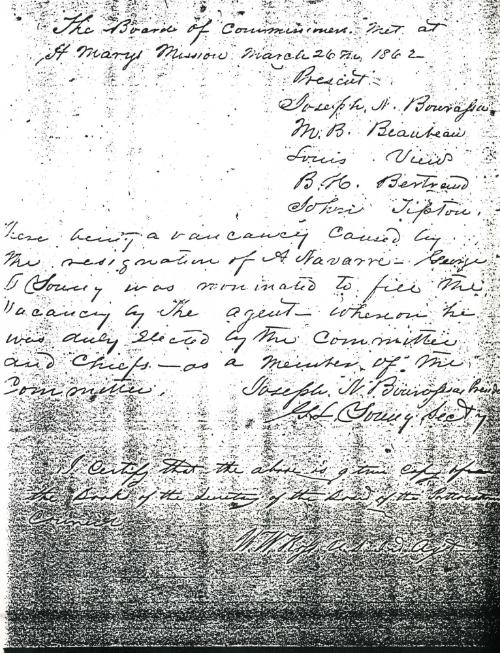 The Board of Commissioners Met at
St Marys Mission March 26th, 1862
Present
Joseph. N. Bourassa.
M. B. Beaubeau
Louis View
B. H. Bertrand
John Tipton.
There being a vancancy caused by
the resignation of A Navarre - George
L Young was nominated to fill the
Vacancy by the agent - wheron he
was duly Elected by the Committee
and Chiefs - as a member of the
Committee. Joseph. N. Bourassa, Presid
G L Young Sect'y
I Certify that the above is a true copy
the book of the Secretary of the Board of the
Council
W. W. Ross U.S. Ind. Agt